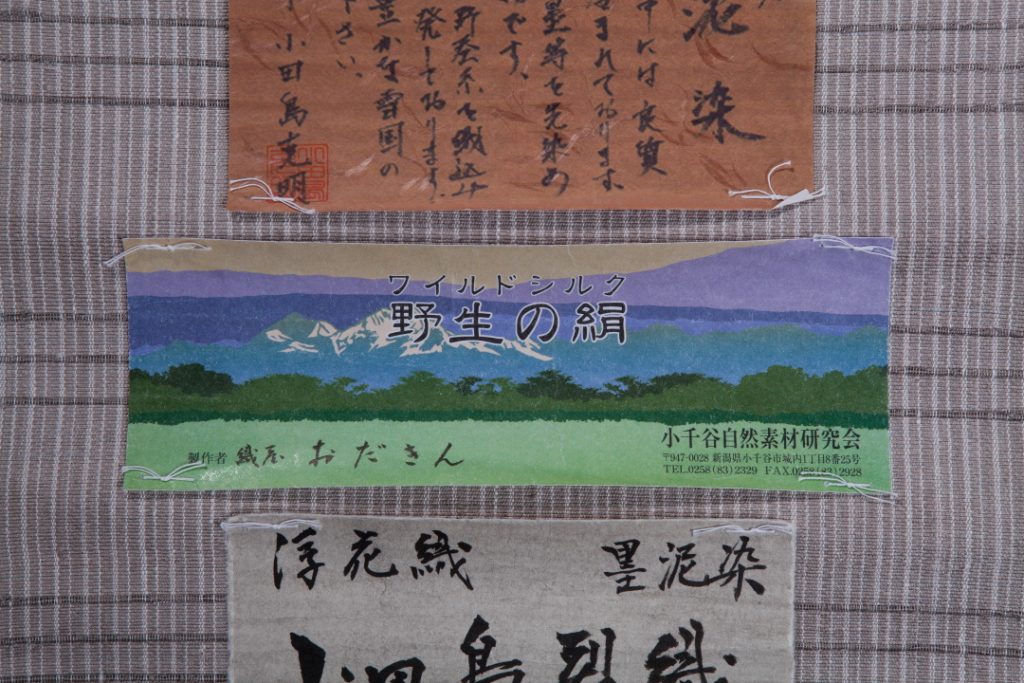 泥染
中には良質
まれております。
を先染め
です。
野蚕糸を織込み
発しております。
豊かな雪国の
下さい。
小田島克明
ワイルドシルク
野生の絹
製作者 織屋 おだきん
小千谷自然素材研究会
〒947-0028 新潟県小千谷市城内1丁目8番25号
TEL.0258(83)2329 FAX.0258(83)2928
浮花織 墨泥染
小田島 織